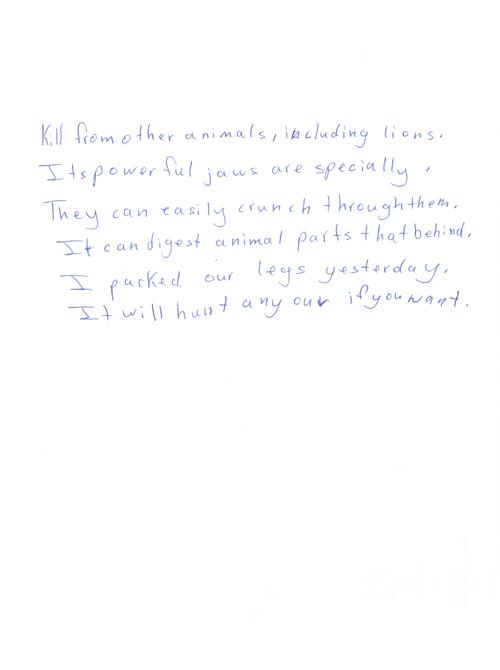 Kill from other animals, including lions.
Its powerful jaws are specially ,
They can easily crunch through them.
It can digest animal parts that behind.
I packed our legs yesterday.
It will hunt any our if you want.